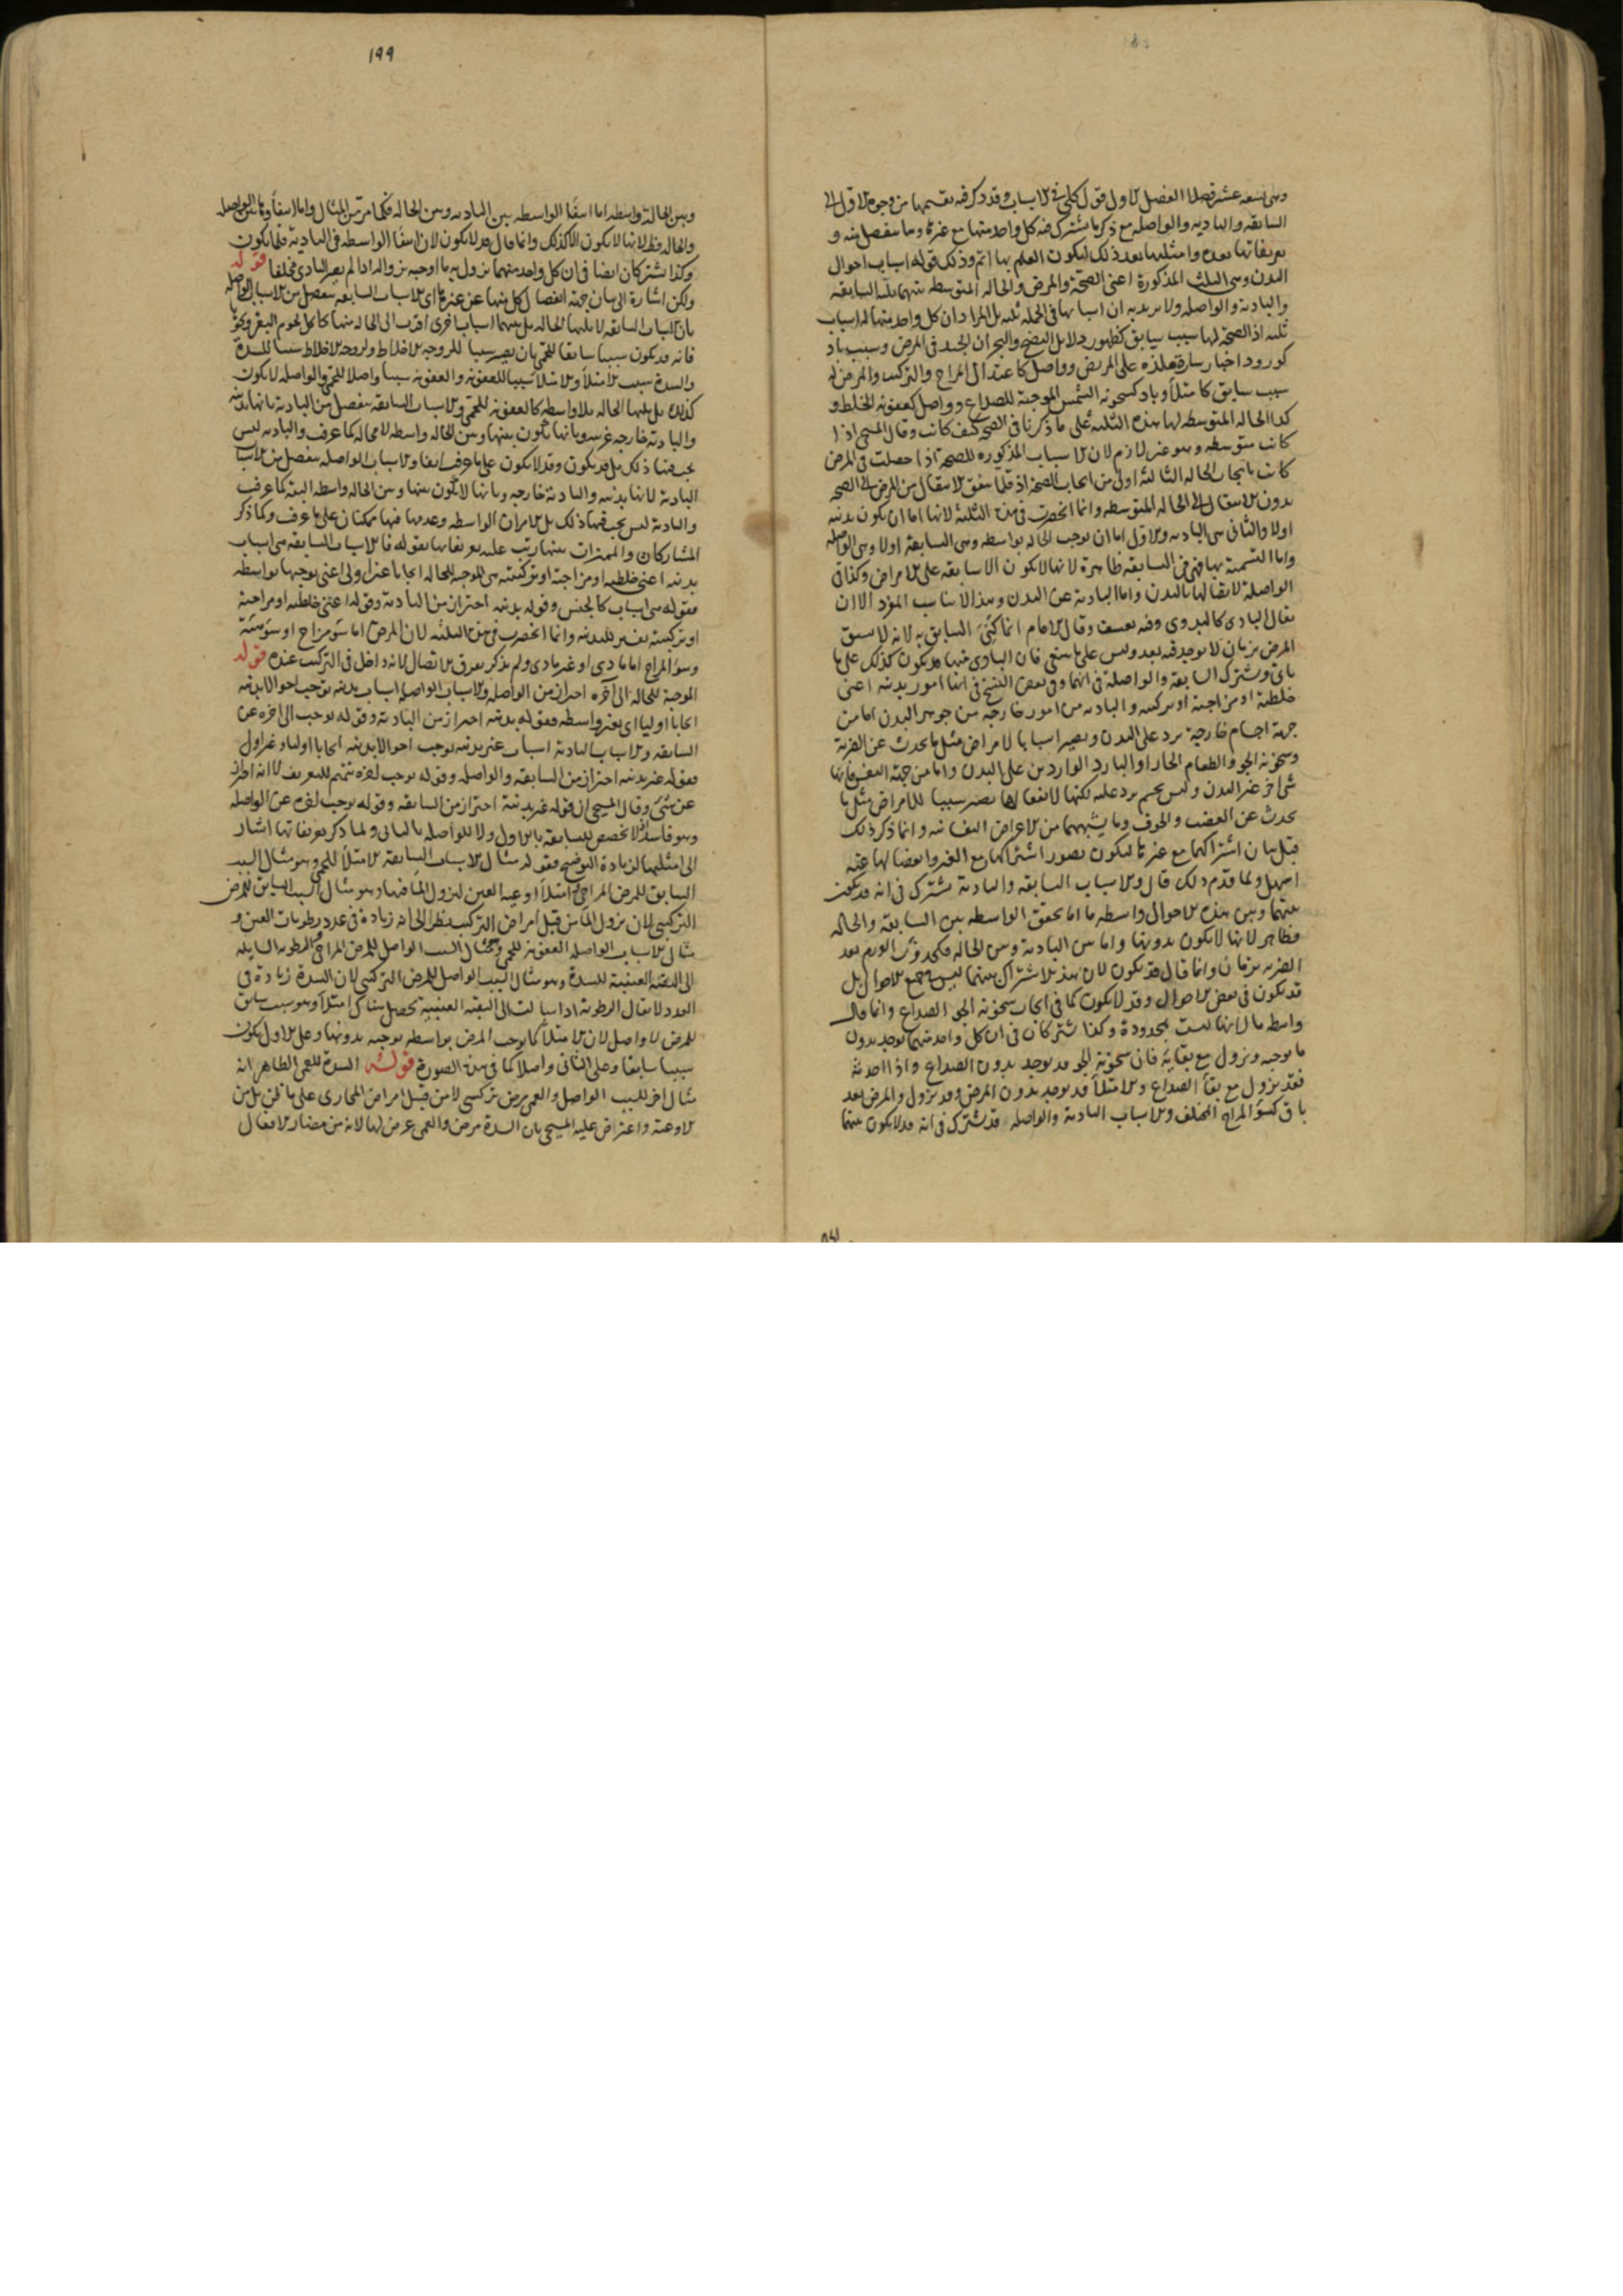 وهى تسعة عشر فصلا الفصل الاول قول كلى فى الاسباب وقد ذكر فيه تقسيمها من وجوه الاول الى
السابقة والبادية والواصلة مع ذكر ما يشترك فيه كل واحد منها مع غيره وما ينفصل منه و
تعريفاتها بعده وامثلتها بعد ذلك ليكون العلم بها اتم وذلك قوله اسباب احوال
البدن وهى الثلث المذكورة اعنى الصحة والمرض والحالة المتوسطة بينهما ثلثة السابقة
والبادية والواصلة ولا يريد به ان اسبابها فى الجملة ثلثة بل المراد ان كل واحد منها له اسباب
ثلثة اذ الصحة لها سبب سابق كظهور دلايل النضج والبحران الجيد فى المرض وسبب باد
كورود اخبار سارة ملذة على المريض وواصل كاعتدال المزاج والتركيب والمرض له
سبب سابق كامتلأ وباد كسخونة الشمس الموجبة للصداع وواصل كعفونة الخلط و
كذا الحالة المتوسطة لها هذه الثلثة على ما ذكرنا فى الصحة كيف كانت وقال المسيحى اذا
كانت متوسطة وهو غير لازم لان الاسباب المذكورة للصحة اذا حصلت فى المرض
كانت بايجاب الحالة الثالثة اولى من ايجاب الصحة اذ قلما يتفق الانتقال من المرض الى الصحة
بدون الانتقال الى الحالة المتوسطة وانما انحصرت فى هذه الثلثة لانها اما ان يكون بدنية
اولا والثانى هى البادية والاول اما ان توجب الحالة بواسطة وهى السابقة اولا وهى الواصلة
واما التسمية بها فهى فى السابقة ظاهرة لانها لا يكون الا سابقة على الامراض وكذا فى
الواصلة لاتصالها بالبدن واما البادية عن البدن وهذا لا يناسب الا ان
يقال البادى كالبدوى وفيه تعسف وقال الامام انما السابق به لانه لا سبق
المرض بزمان لا يوجد فيه بعد وليس على ما ينبغى فان البادى منها قد يكون كذلك على ما
ياتى ويشترك السابقة والواصلة فى انهما وفى بعض النسخ فى انها امور بدنية اعنى
خلطية او مزاجية او تركيبية والبادية من امور خارجة من جوهر البدن اما من
جهة اجسام خارجية يرد على البدن ويصير اسبابا لامراض مثل ما يحدث عن الضربة
وسخونة الجو والطعام الحار او البارد الواردين على البدن واما من جهة النفس فانها
شى اخر غير البدن وليس بجسم يرد عليه لكنها لانفعالها تصير سببا للامراض مثل ما
يحدث عن الغضب والخوف وما يشبههما من الاعراض النفسانية وانما ذكر ذلك
قبل بيان اشتراكهما مع غيرها ليكون تصور اشتراكها مع الغير وانفصالها عنه
اسهل ولما قدم ذلك قال والاسباب السابقة والبادية يشترك فى انه قد يكون
بينهما وبين هذه الاحوال واسطة ما اما تحقق الواسطة بين السابقة والحالة
فظاهر لانها لا يكون بدونها واما بين البادية وبين الحالة فكحدوث الورم بعد
الضربة بزمان وانما قال قد يكون لان هذه الاشتراك بينهما ليس فى جميع الاحوال بل
قد يكون فى بعض الاحوال وقد لا يكون كما فى ايجاب سخونة الجو الصداع وانما قال
واسطة ما لانها ليست بمحدودة وكذا يشتركان فى ان كل واحد منهما يوجد بدون
ما يوجبه ويزول مع بقايه فان سخونة الجو قد يوجد بدون الصداع واذا احدثه
فقد يزول مع بقأ الصداع والامتلأ قد يوجد بدون المرض وقد يزول والمرض بعد
باق كسؤ المزاج المختلف والاسباب البادية والواصلة قد يشترك فى انه قد لا يكون بينهما
١٩٩
وبين الحالة واسطة اما انتفأ الواسطة بين البادية وبين الحالة فكما مر من المثال واما انتفأوها بين الواصلة
والحالة فظ لانها لا يكون الا كذلك وانما قال قد لا يكون لان انتفأ الواسطة فى البادية قلما يكون
وكذا يشتركان ايضا فى ان كل واحد منهما يزول به ما اوجبه بزواله اذا لم يصر البادى مخلفا قوله
ولكن اشارة الى بيان جهة انفصال كل منها عن غيره اى الاسباب السابقة ينفصل من الاسباب الواصلة
بان الاسباب السابقة لا يليها الحالة بل بينهما اسباب اخرى اقرب الى الحالة منها كاكل لحوم البقر ونحوه
فانه قد يكون سببا سابقا للحمى بان يصير سببا للزوجة الاخلاط ولزوجة الاخلاط سببا للسدة
والسدة سبب الامتلأ والامتلأ سببا للعفونة والعفونة سببا واصلا للحمى والواصلة لا يكون
كذلك بل يليها الحالة بلا واسطة كالعفونة للحمى والاسباب السابقة ينفصل من البادية بانها بدنية
والبادية خارجة غير بدنية وبانها يكون بينها وبين الحالة واسطة لا محالة كما عرف والبادية ليس
يجب فيها ذلك بل قد يكون وقد لا يكون على ما عرف ايضا والاسباب الواصلة ينفصل من الاسباب
البادية لانها بدنية والبادية خارجة وبانها لا يكون بينها وبين الحالة واسطة البتة كما عرف
والبادية ليس يجب فيها ذلك بل الامران الواسطة وعدمها فيها ممكنان على ما عرف ولما ذكر
المشاركات والمميزات بينها رتب عليه تعريفاتها بقوله فالاسباب السابقة هى اسباب
بدنية اعنى خلطية او مزاجية او تركيبية هى الموجبة للحالة ايجابا غير اولى اعنى يوجبها بواسطة
فقوله هى اسباب كالجنس وقوله بدنية احتراز من البادية وقوله اعنى خلطية او مزاجية
او تركيبية تفسير للبدنية وانما انحصرت فى هذه الثلثة لان المرض اما سؤ مزاج او سؤ هيئة
وسؤ المزاج اما مادى او غير مادى ولم يذكر تفرق الاتصال لانه داخل فى التركيب عنده قوله
الموجبة للحالة الى آخره احتراز من الواصلة والاسباب الواصلة اسباب بدنية توجب احوالا بدنية
ايجابا اوليا اى بغير واسطة فقوله بدنية احتراز من البادية وقوله يوجب الى اخره عن
السابقة والاسباب البادية اسباب غير بدنية توجب احوالا بدنية ايجابا اوليا وغير اولى
فقوله غير بدنية احتراز من السابقة والواصلة وقوله يوجب لغيره تتميم للتعريف لا انه احتراز
عن شىء وقال المسيحى ان قوله غير بدنية احتراز من السابقة وقوله يوجب لغيره عن الواصلة
وهو فاسد اذ لا تخصص للسابقة بالاول ولا للواصلة بالثانى ولما ذكر تعريفاتها اشار
الى امثلتها لزيادة التوضيح فقوله مثال الاسباب السابقة الامتلأ للحمى وهو مثال السبب
السابق للمرض المزاجى وامتلأ اوعية العين لنزول المأ فيها وهو مثال السبب السابق للمرض
التركيبى لان نزول المأ من قبل امراض التركيب نظرا الى انه زيادة فى عدد رطوبات العين و
مثال الاسباب الواصلة العفونة للحمى وهو مثال السبب الواصل للمرض المزاجى والرطوبة السايلة
الى الثقبة العنبية للسدة وهو مثال السبب الواصل للمرض التركيبى لان السدة زيادة فى
العدد لا يقال الرطوبة اذا سالت الى الثقبة العنبية تحصل هناك امتلأ وهو سبب سابق
للمرض لا واصل لان الامتلأ كما يوجب المرض بواسطة يوجبه بدونها وعلى الاول يكون
سببا سابقا وعلى الثانى واصلا كما فى هذه الصورة قوله السدة للعمى الظاهر انه
مثال اخر للسبب الواصل والعمى مرض تركيبى لا من قبل امراض المجارى على ما ظن بل من
الاوعية واعترض عليه المسيحى بان السدة مرض والعمى عرض لها لانه من مضار الافعال